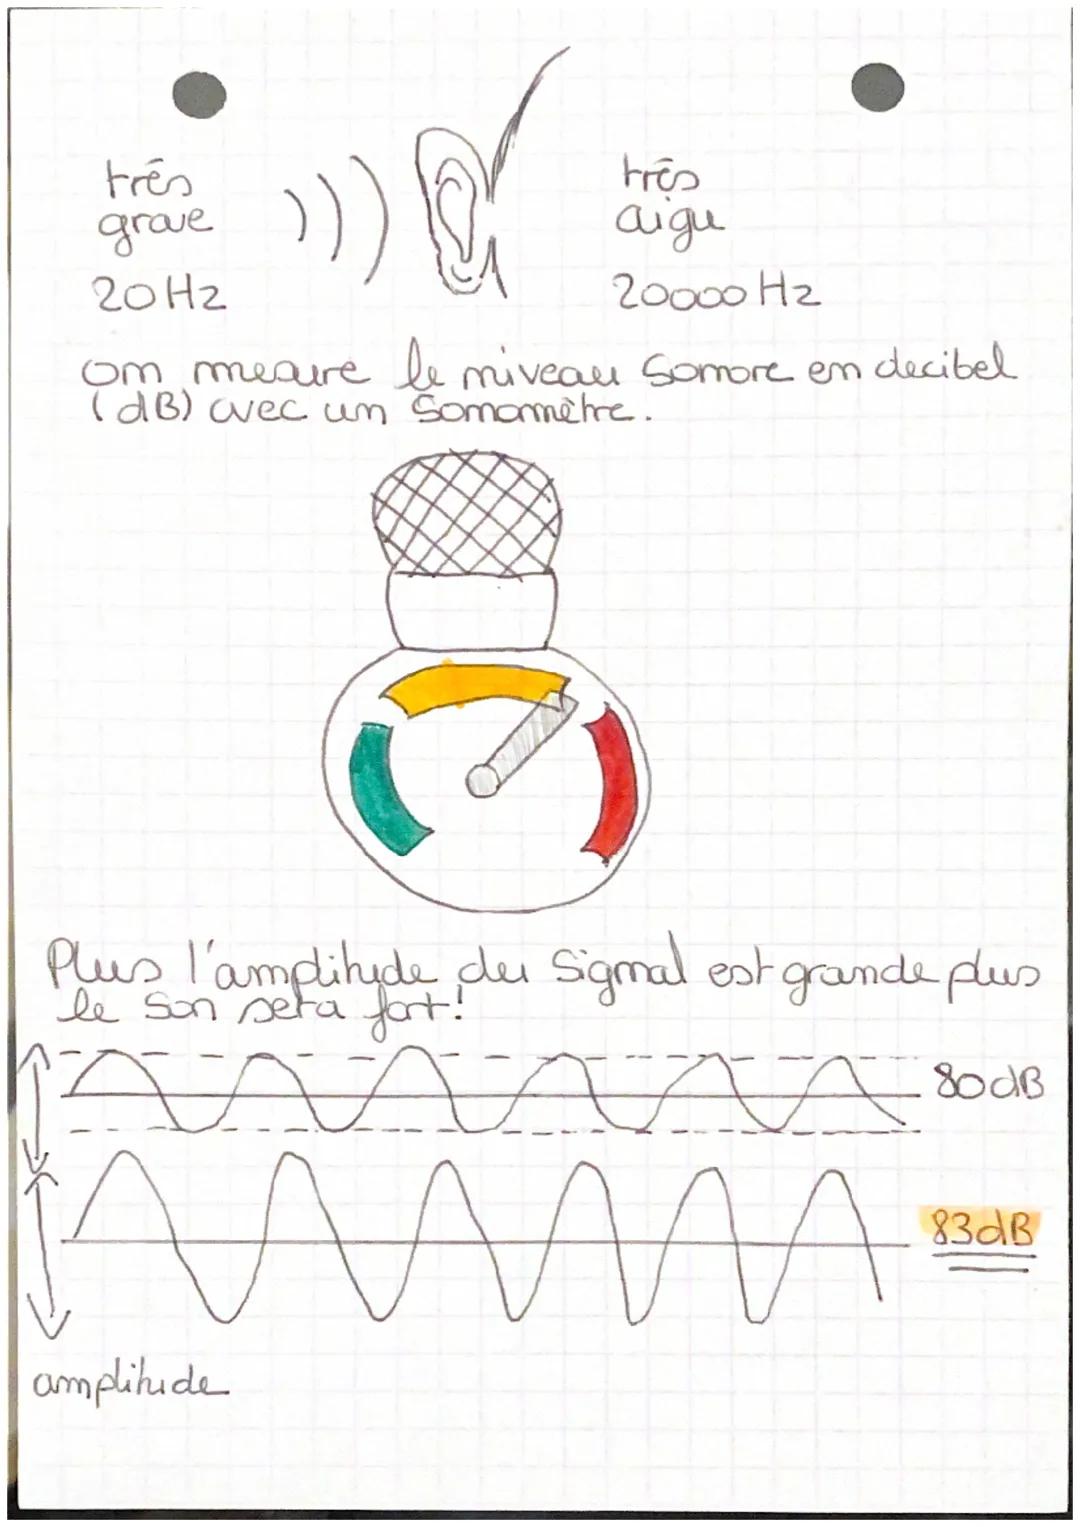 très
grave
20 Hz
très
aigu
20000 Hz
on mesure le niveau sonore en decibel
(dB) avec un Sonomètre.
Plus l'amplitude du Signal est grande plus
le son sera fort!
80dB
83dB
amplitude